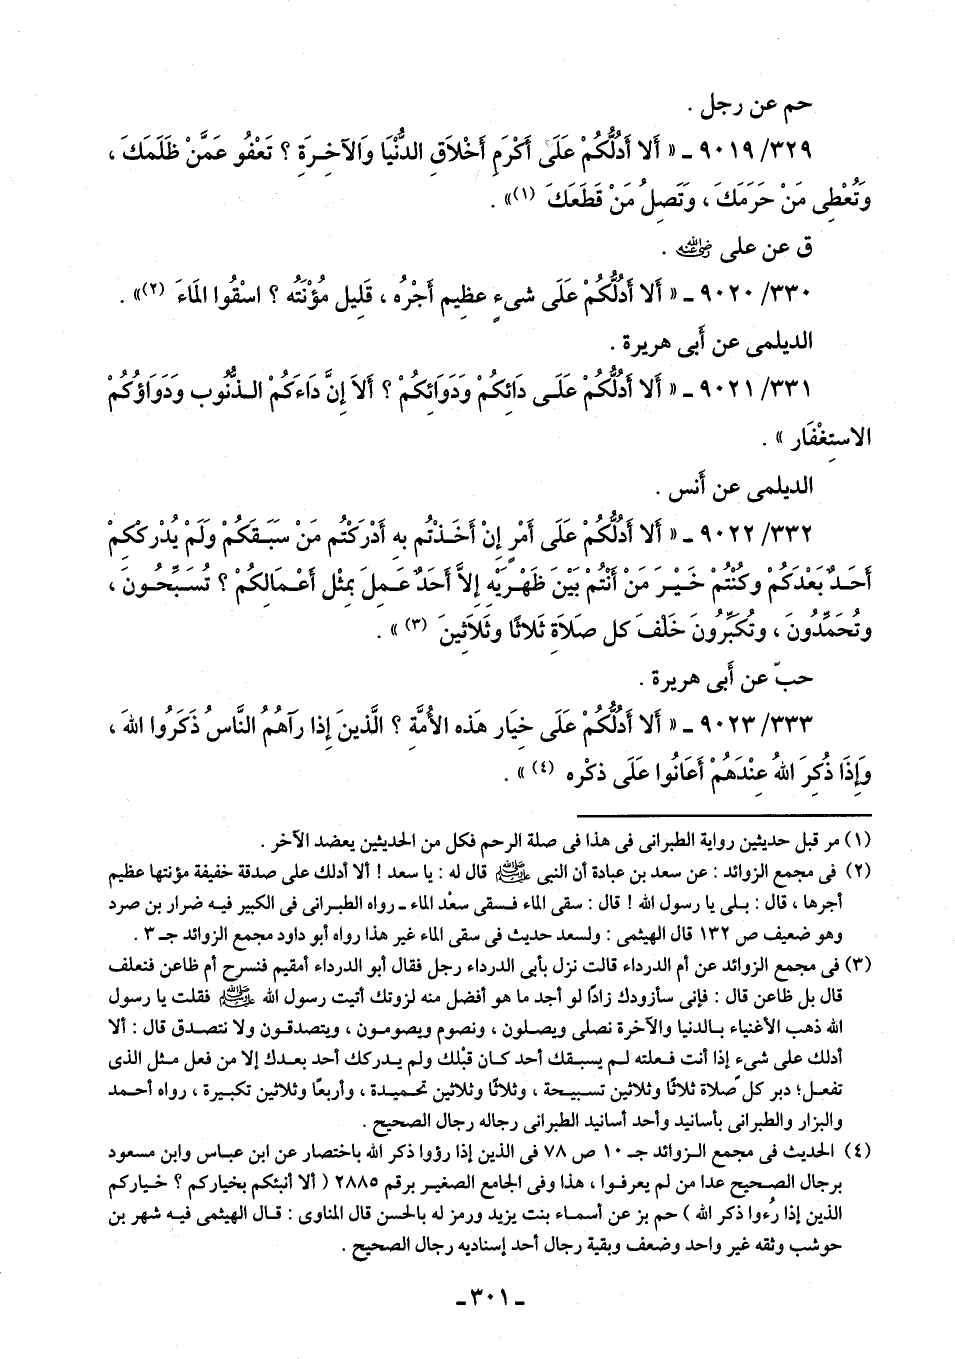 حم عن رجل .
٣٢٩/ ٩٠١٩ ـ « أَلا أَدُلُّكُمْ عَلَى أَكْرَمِ أَخْلاَقِ الدُّنْيَا وَالآخِرَةِ ؟ تَعْفُو عَمَّنْ ظَلَمَكَ ،
وَتُعْطِى مَنْ حَرَمَكَ ، وَتَصِلُ مَنْ قَطَعَكَ (١)» .
ق عن على ﵁ .
٣٣٠/ ٩٠٢٠ ـ « أَلا أَدُلُّكُمْ عَلَى شىءٍ عظِيم أَجْرُه ، قَلِيل مؤْنَتُه ؟ اسْقُوا المَاءَ (٢)» .
الديلمى عن أَبى هريرة .
٣٣١/ ٩٠٢١ ـ « أَلا أَدُلُّكُمْ عَلَى دَائِكُمْ وَدَوَائِكُمْ ؟ أَلاَ إِنَّ دَاءَكُمْ الذُّنُوب وَدَوَاؤُكُمْ
الاستِغْفَار » .
الديلمى عن أَنس .
٣٣٢/ ٩٠٢٢ ـ « أَلا أَدُلُّكُمْ عَلَى أَمْرٍ إِنْ أَخَذْتُم بِهِ أَدْرَكْتُم مَنْ سَبَقَكُمْ وَلَمْ يُدْرِكْكِم
أَحَدٌ بَعْدَكُمْ وكُنْتُمْ خَيْرَ مَنْ أَنْتُم بَيْنَ ظَهْرَيْهِ إِلاَّ أَحَدٌ عَمِلَ بِمثْل أَعْمَالِكُمْ ؟ تُسَبِّحُونَ ،
وتُحَمِّدُونَ ، وتُكَبِّرُونَ خَلْفَ كل صلاَةٍ ثَلاثًا وثَلاَثِينَ (٣) » .
حبّ عن أَبى هريرة .
٣٣٣/ ٩٠٢٣ ـ « أَلا أَدُلُّكُمْ عَلَى خِيَار هَذه الأُمَّةِ ؟ الَّذينَ إِذا رَآهُمُ النَّاسُ ذَكَرُوا اللهَ ،
وَإِذَا ذُكِرَ اللهُ عِنْدَهُمْ أَعَانُوا عَلَى ذِكْره (٤) » .
(١) مر قبل حديثين رواية الطبرانى فى هذا فى صلة الرحم فكل من الحديثين يعضد الآخر .
(٢) فى مجمع الزوائد : عن سعد بن عبادة أن النبى ﷺ قال له : يا سعد ! ألا أدلك على صدقة خفيفة مؤنتها عظيم
أجرها ، قال : بلى يا رسول الله ! قال : سقى الماء فسقى سعْد الماء ـ رواه الطبرانى فى الكبير فيه ضرار بن صرد
وهو ضعيف ص ١٣٢ قال الهيثمى : ولسعد حديث فى سقى الماء غير هذا رواه أبو داود مجمع الزوائد جـ ٣ .
(٣) فى مجمع الزوائد عن أم الدرداء قالت نزل بأبى الدرداء رجل فقال أبو الدرداء أمقيم فنسرح أم ظاعن فنعلف
قال بل ظاعن قال : فإنى سأزودك زادًا لو أجد ما هو أفضل منه لزوتك أتيت رسول الله ﷺ فقلت يا رسول
الله ذهب الأغنياء بالدنيا والآخرة نصلى ويصلون ، ونصوم ويصومون ، ويتصدقون ولا نتصدق قال : ألا
أدلك على شىء إذا أنت فعلته لم يسبقك أحد كان قبْلك ولم يدركك أحد بعدك إلا من فعل مثل الذى
تفعل؛ دبر كل صلاة ثلاثًا وثلاثين تسبيحة ، وثلاثًا وثلاثين تحميدة ، وأربعًا وثلاثين تكبيرة ، رواه أحمد
والبزار والطبرانى بأسانيد وأحد أسانيد الطبرانى رجاله رجال الصحيح .
(٤) الحديث فى مجمع الزوائد جـ ١٠ ص ٧٨ فى الذين إذا رؤوا ذكر الله باختصار عن ابن عباس وابن مسعود
برجال الصحيح عدا من لم يعرفوا ، هذا وفى الجامع الصغير برقم ٢٨٨٥ ( ألا أنبئكم بخياركم ؟ خياركم
الذين إذا رُءوا ذكر الله ) حم بز عن أسماء بنت يزيد ورمز له بالحسن قال المناوى : قال الهيثمى فيه شهر بن
حوشب وثقه غير واحد وضعف وبقية رجال أحد إسناديه رجال الصحيح .
ـ ٣٠١ ـ